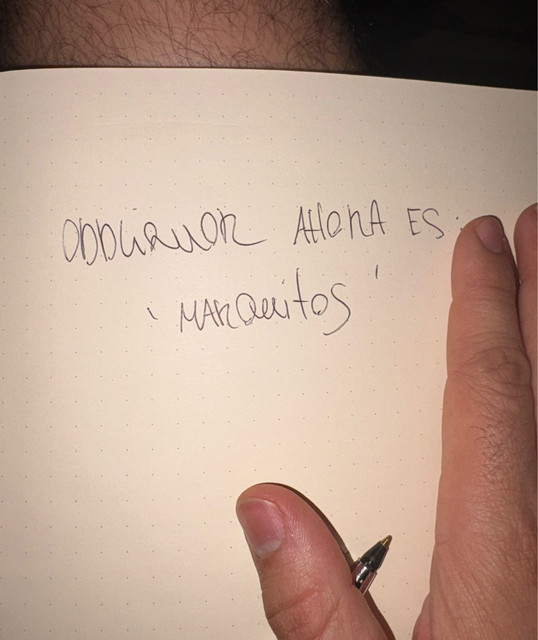 ODDLIQUOR AHORA ES:
'MARQUITOS'